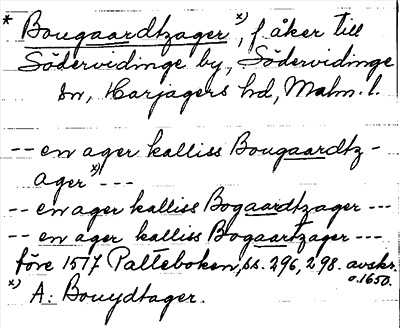 * Bougaardtzager x), f. åker till
Södervidinge by, Södervidinge
sn, Harjagers hd, Malm. l.
-- en ager kalliss Bougaardtz-
ager x) ---
-- en ager kalliss Bogaardtzager ---
-- en ager kalliss Bogaartzager ---
före 1517 Palteboken, ss. 296, 298. avskr.
o. 1650.
x) A: Bouydtager.